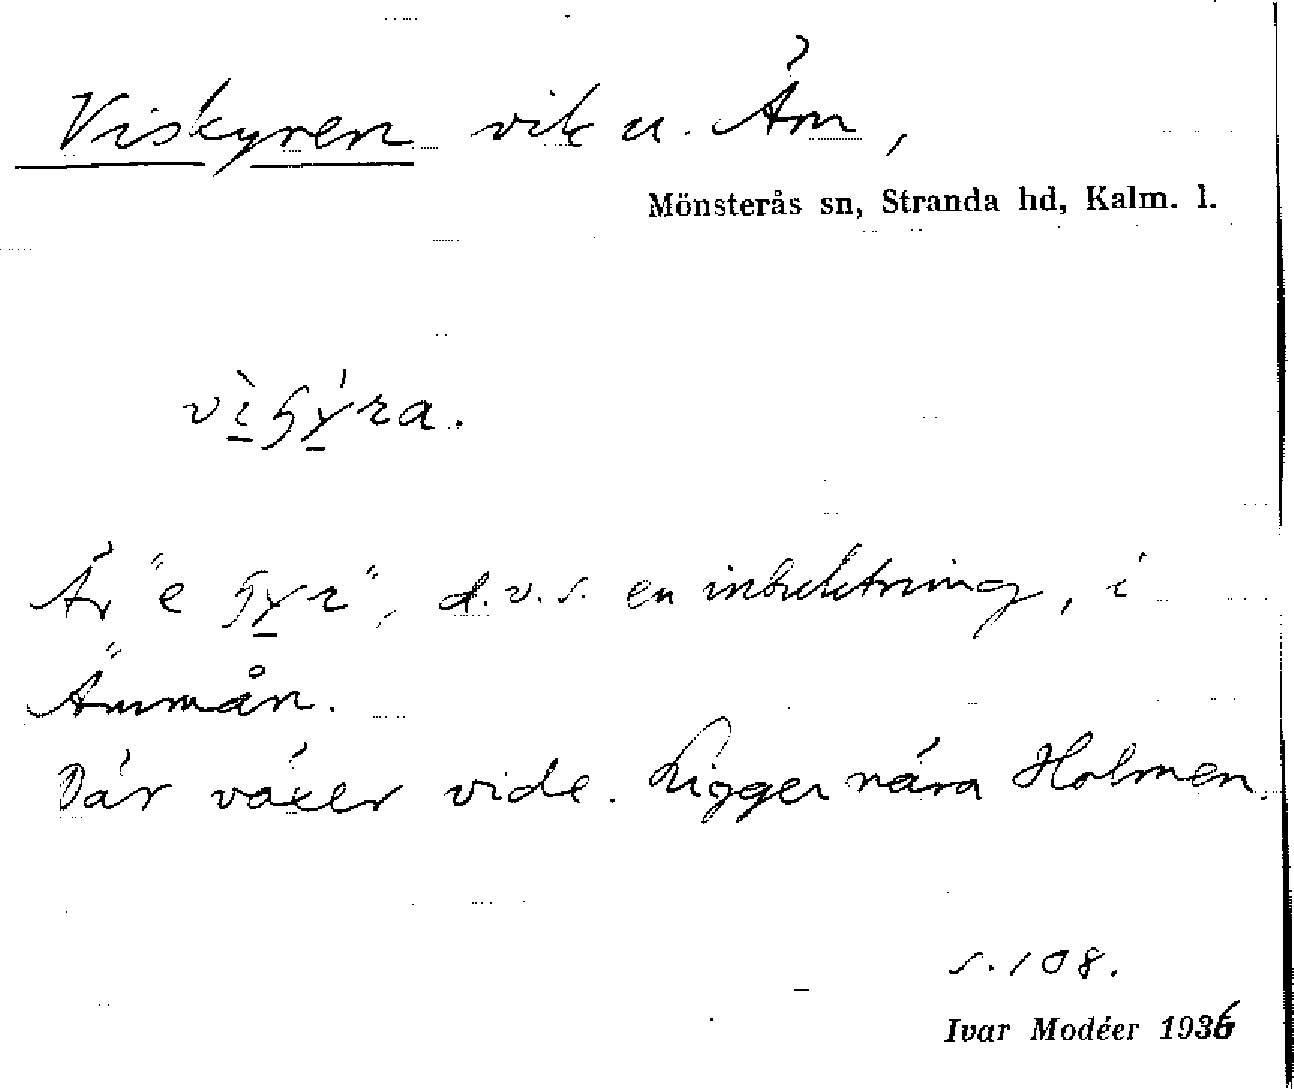 Viskyren vik u. Äm,
Mönsterås sn, Stranda hd, Kalm. l.
vìɧýra.
Är "e ɧyr", d.v.s. en inbuktning, i
Ämmån.
Där växer vide. Ligger nära Holmen.
s. 108.
Ivar Modéer 1936